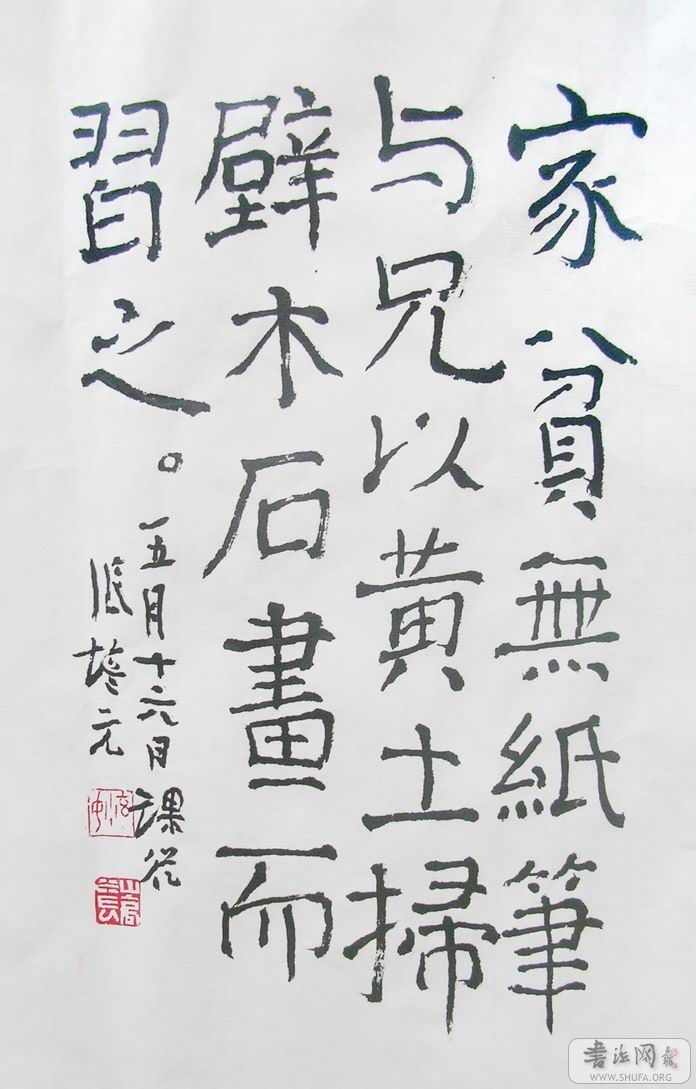 家貧無紙筆
与兄以黄土掃
壁木石畫而
習之。
一五月十六日課
張培元
書法网
WWW.SHUFA.ORG